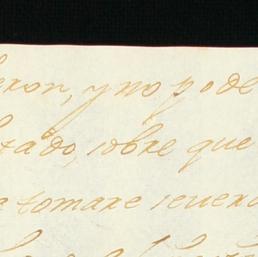 eron, y no pode
tado, sobre que
a tomare severa